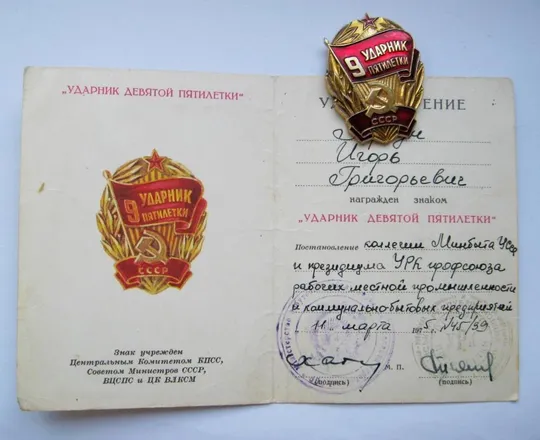 „УДАРНИК ДЕВЯТОЙ ПЯТИЛЕТКИ"
9 УДАРНИК
ПЯТИЛЕТКИ
СССР
Знак учрежден
Центральным Комитетом КПСС,
Советом Министров СССР,
ВЦСПС и ЦК ВЛКСМ
9 УДАРНИК
ПЯТИЛЕТКИ
СССР
Игорь
Григорьевич
награжден знаком
"УДАРНИК ДЕВЯТОЙ ПЯТИЛЕТКИ"
Постановление коллегии Минбыта УССР
и президиума УРК профсоюза
рабочих местной промышленности
и коммунально-бытовых предприятий
11 марта 1975 г. №45/39
М. П.
(подпись) (подпись)